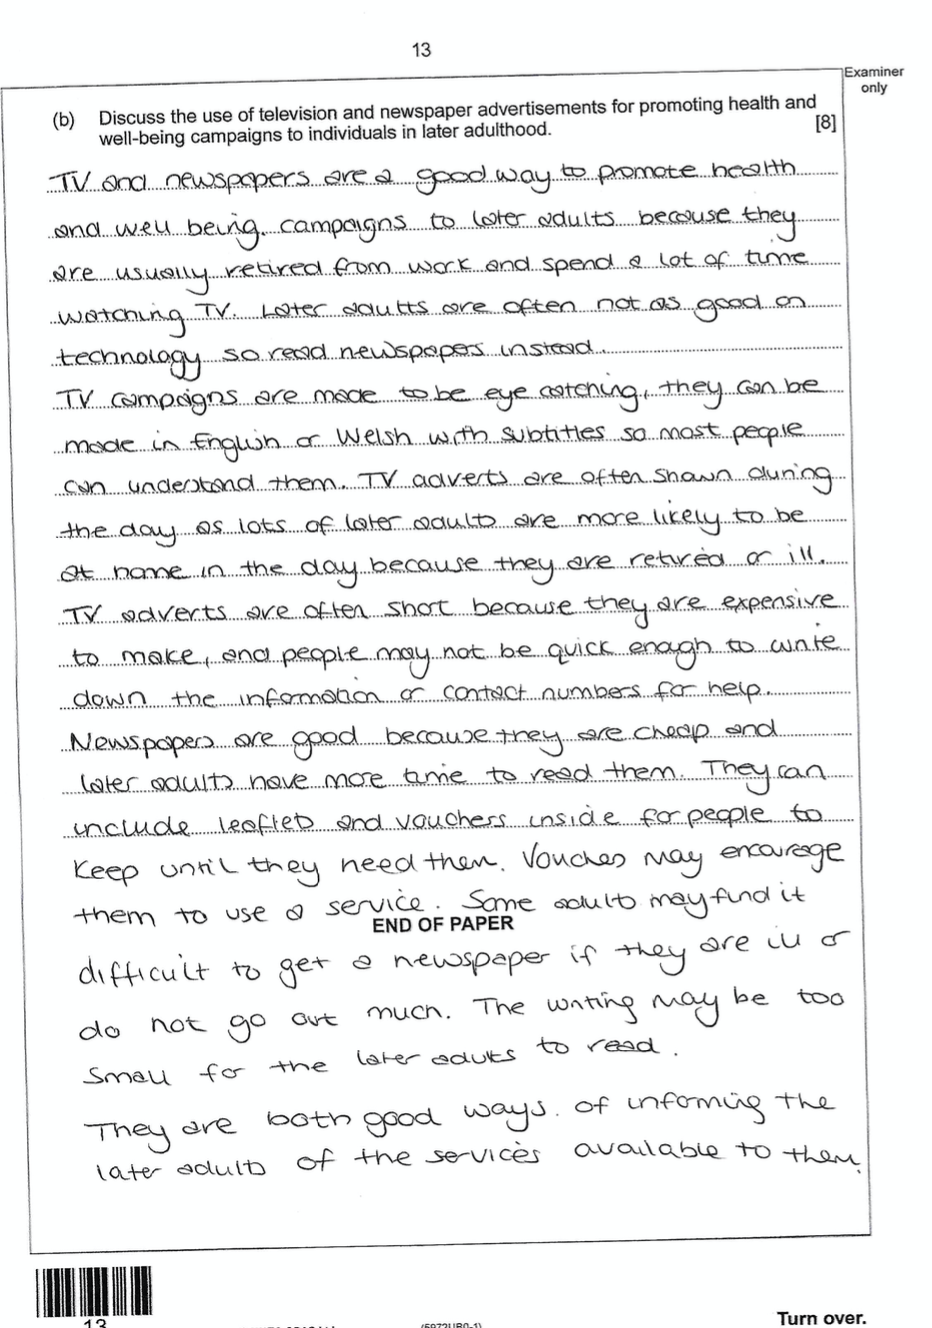 13
Examiner
only
(b) Discuss the use of television and newspaper advertisements for promoting health and
well-being campaigns to individuals in later adulthood.
[8]
TV and newspapers are a good way to promote health
and well being, campaigns to later adults because they
are usually retired from work and spend a lot of time
watching TV. Later adults are often not as good on
technology so read newspapers instead.
TV campaigns are made to be eye catching, they can be
made in English or Welsh with subtitles so most people
can understand them. TV adverts are often shown during
the day as lots of later adults are more likely to be
at home in the day because they are retired or ill.
TV adverts are often short because they are expensive
to make, and people may not be quick enough to write
down the information or contact numbers for help.
Newspapers are good because they are cheap and
later adults have more time to read them. They can
include leaflets and vouchers inside for people to
Keep until they need them. Vouches may encourage
them to use a service. Some adults may find it
END OF PAPER
difficult to get a newspaper if they are ill or
do not go out much. The writing may be too
Small for the later adults to read.
They are both good ways. of informing the
later adults of the services available to them.
13
Turn over.